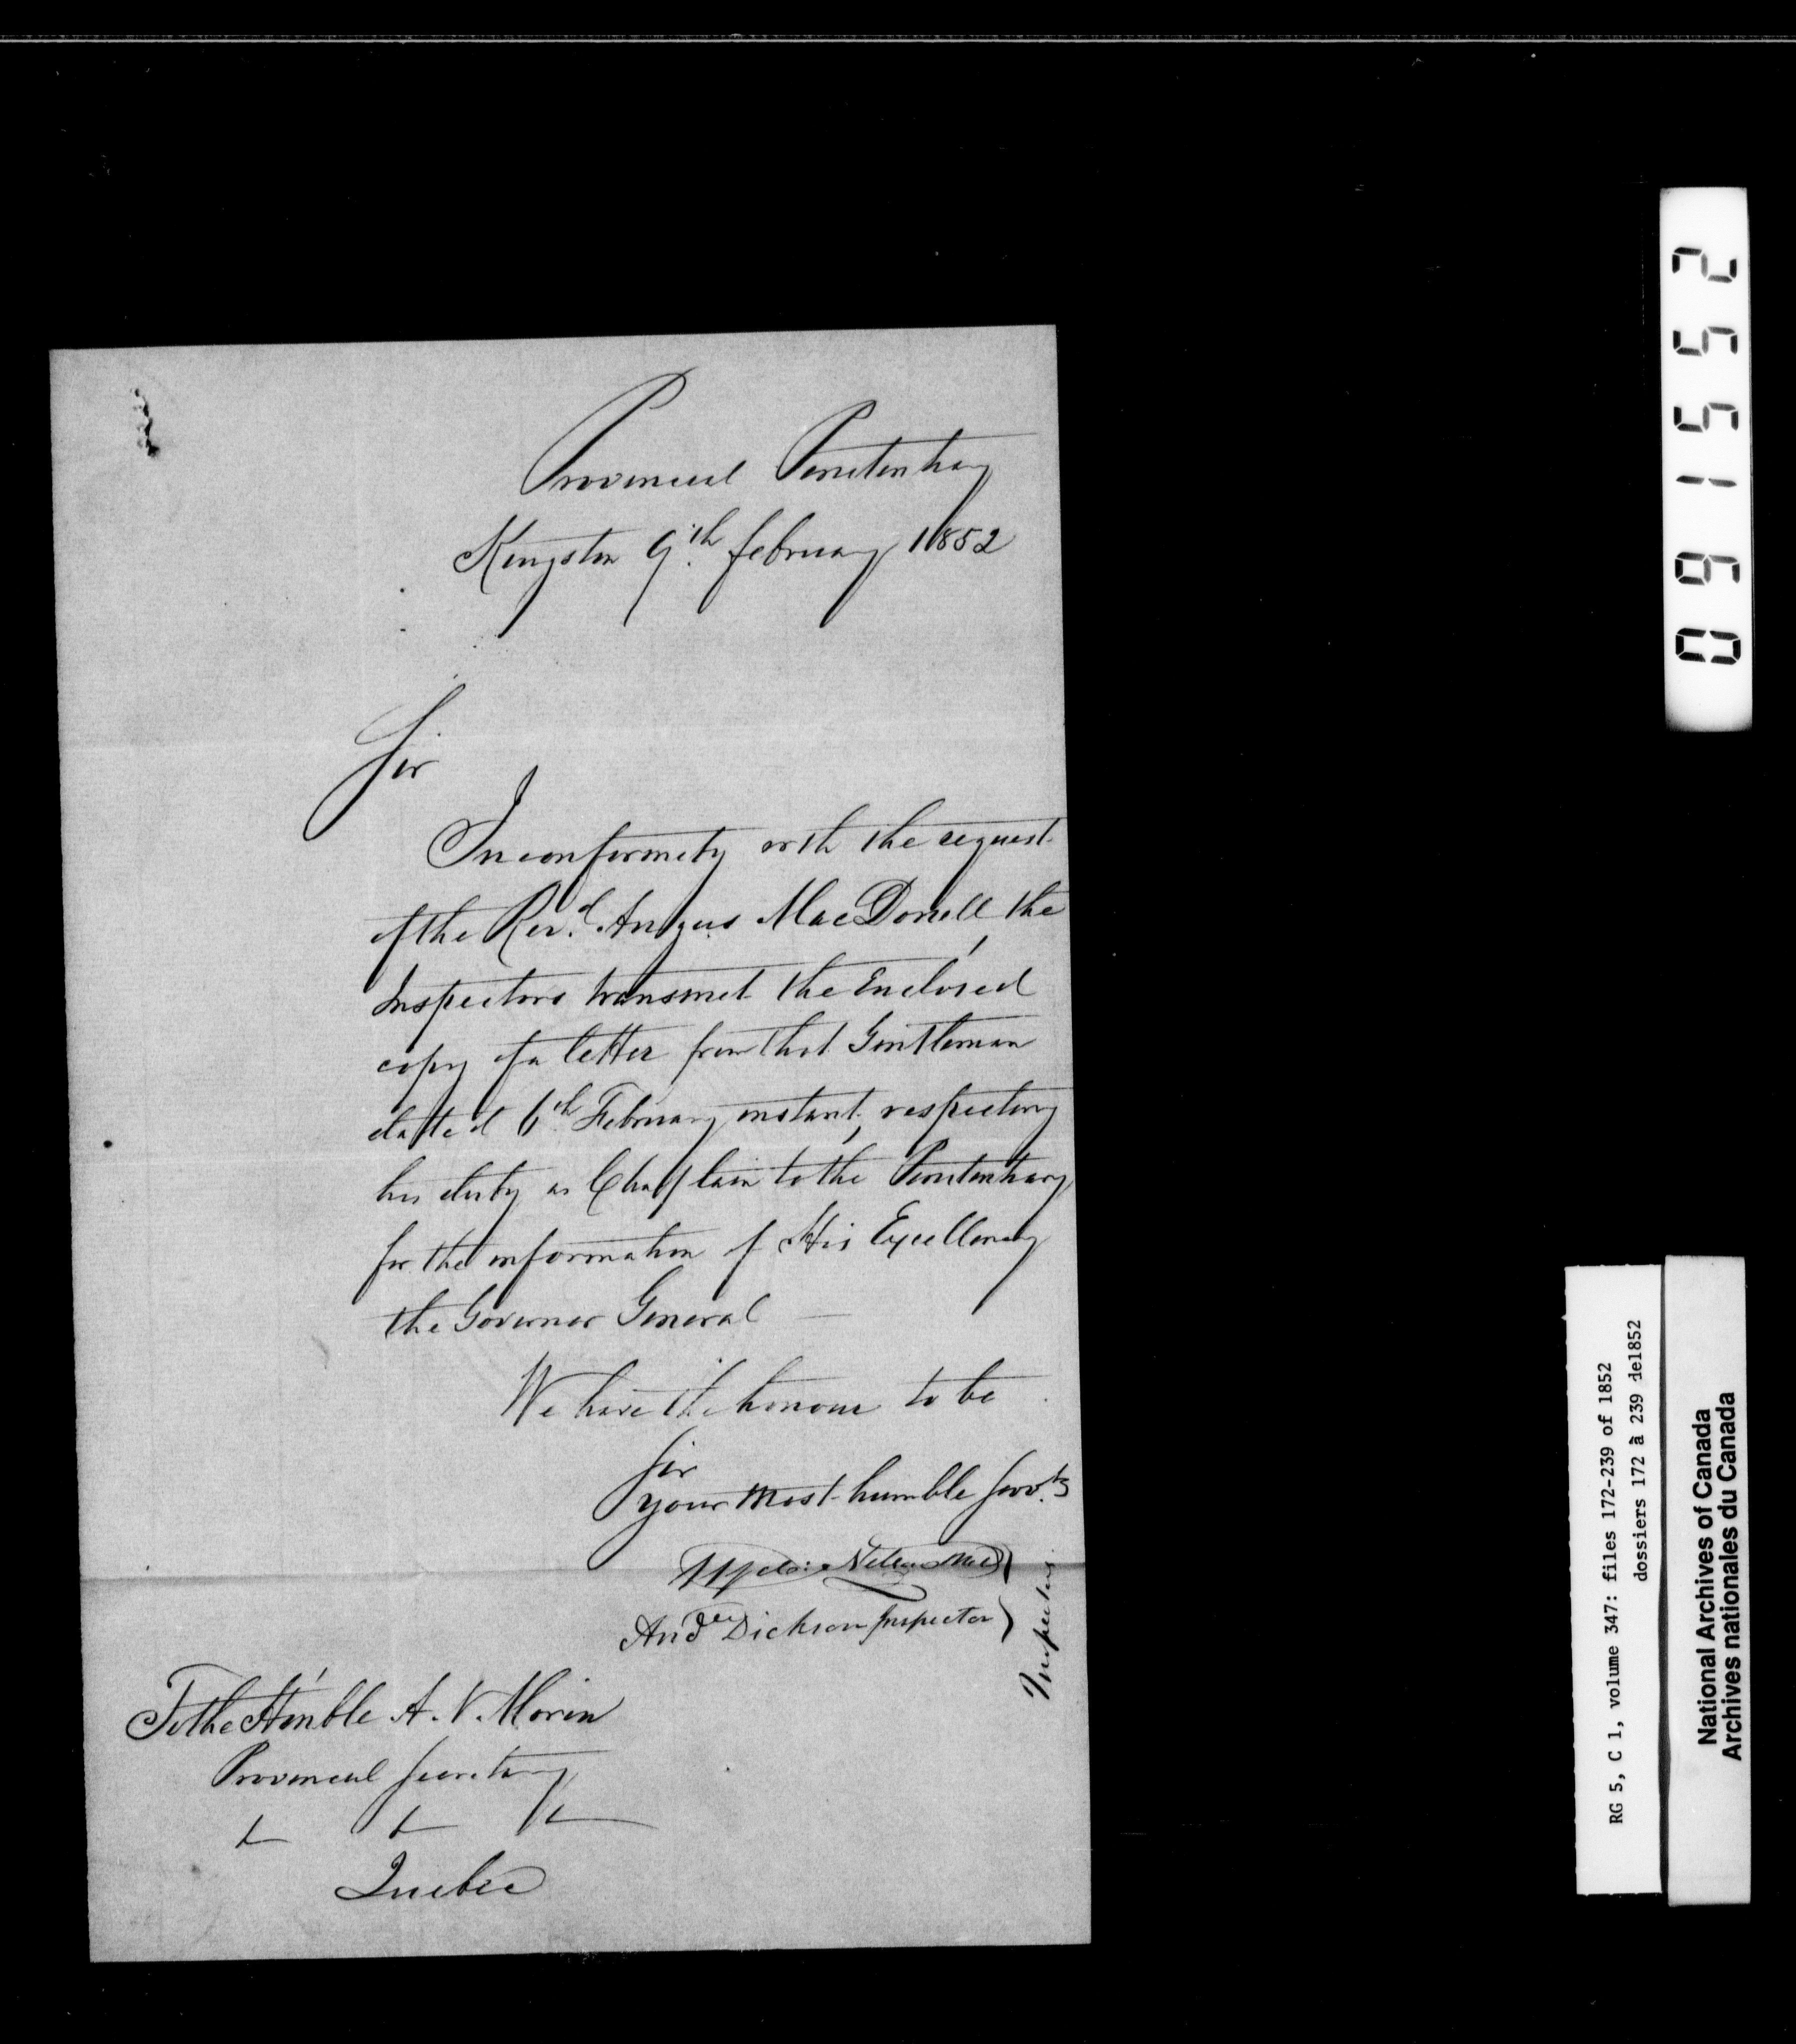 Provincial Penitentiary
Kingston 9th. february 1852
Sir
In conformity with the request
of the Revd. Angus MacDonell, the
Inspectors transmit the Enclosed
copy of a letter from that Gentleman
dated 6th February instant, respecting
his duty as Chaplain to the Penitentiary
for the information of His Excellency
the Governor General —
We have the honour to be
Sir
your most humble Servts
Nelson
Andw Dickson Inspector
Inspectors
To the Honble A. N. Morin
Provincial Secretary
Quebec
091552
RG 5, C 1, volume 347: files 172-239 of 1852
dossiers 172 à 239 de1852
National Archives of Canada
Archives nationales du Canada